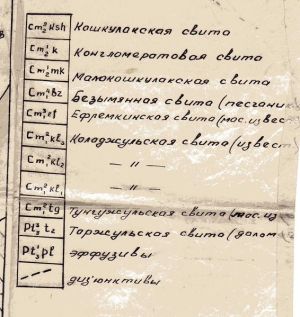 Cm₂ksh Кошкулакская свита
Cm₂k Конгломератовая свита
Cm₂mk Малокошкулакская свита
Cm₁bz Безымянная свита (песчаник
Cm₁ef Ефремкинская свита (мос. извест
Cm₁kl₃ Колоджульская свита (извест
Cm₁kl₂ —〃 —
Cm₁kl₁ — 〃 —
Cm₁tg Тунгужульская свита (мос. из
Pt₃tz Торжульская свита (долом
Pt₃pl эффузивы
дизъюнктивы